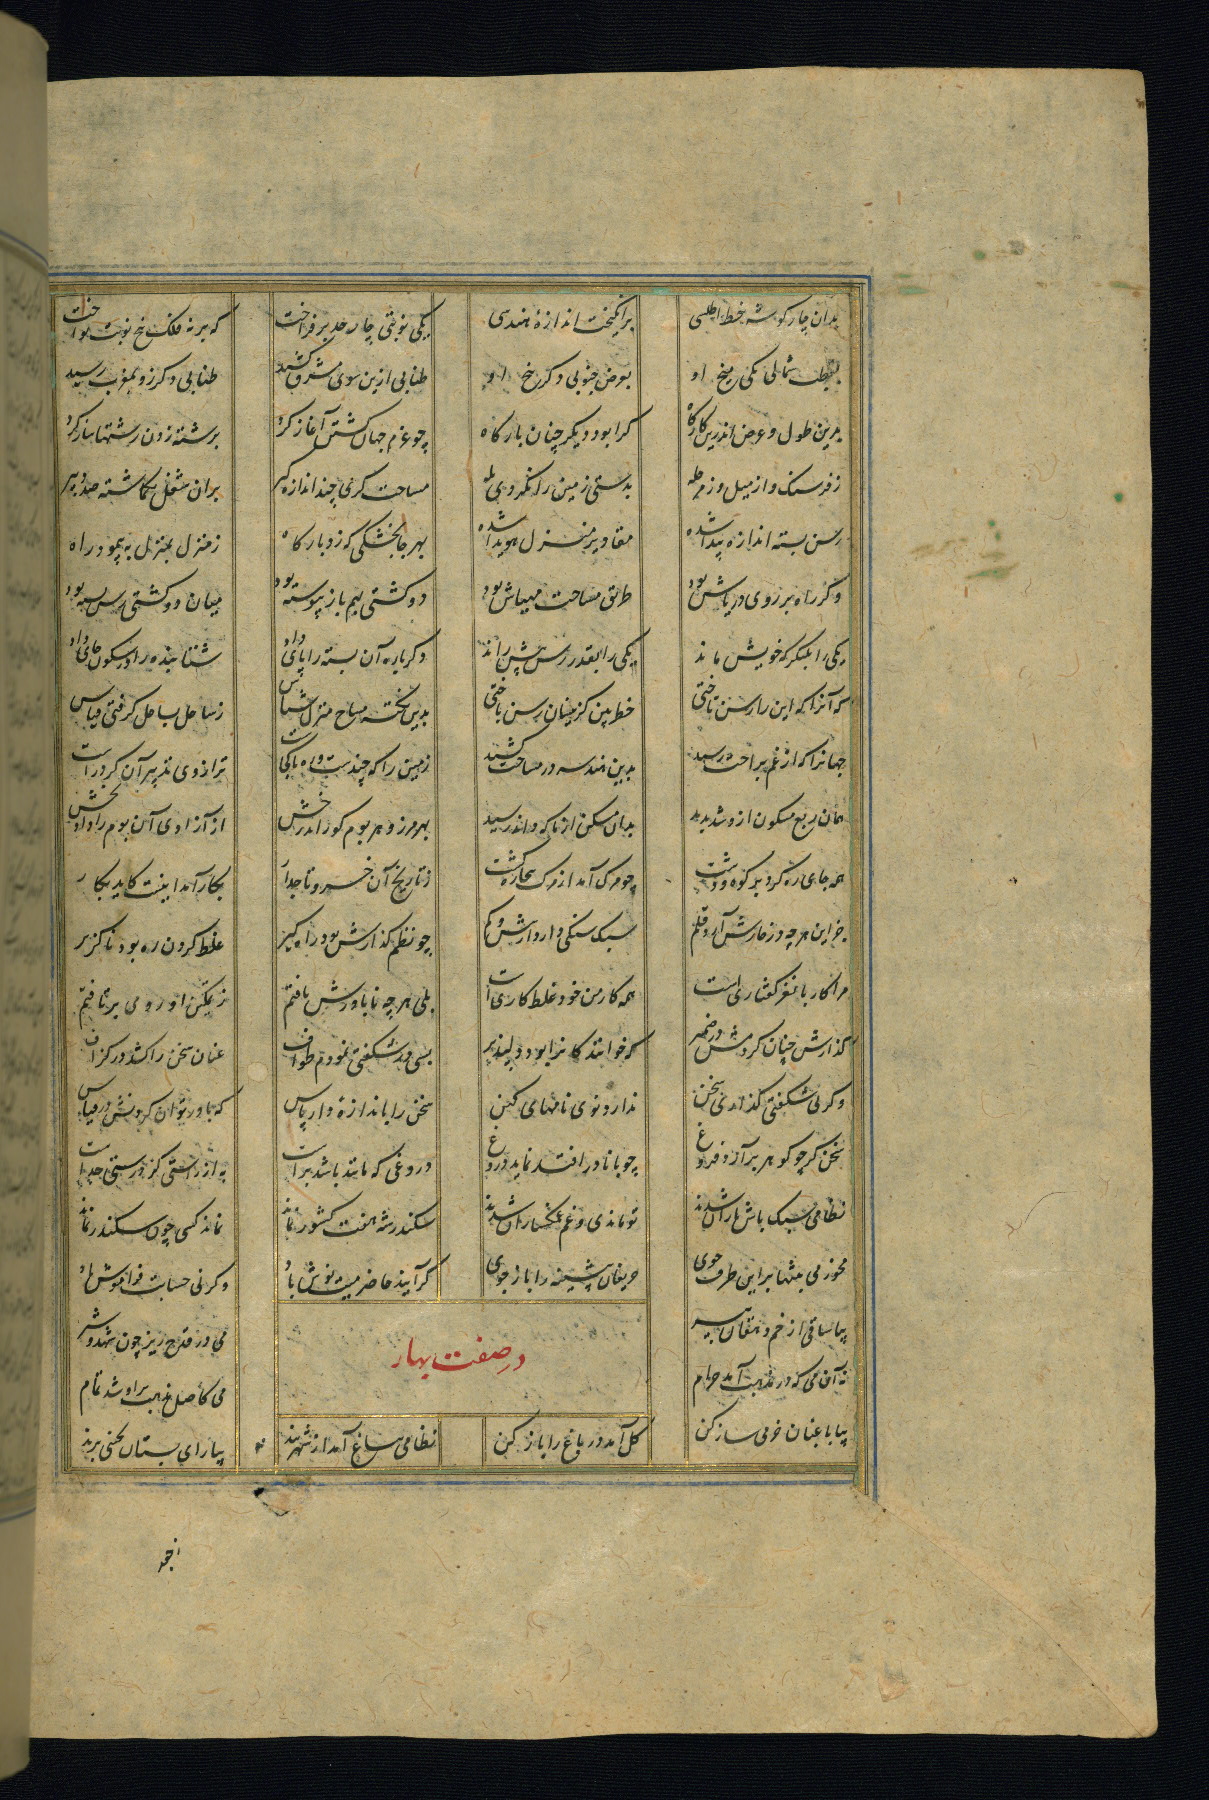 بدان چار گوشه خط اطلسی برانگیخت اندازهٔ هندسی یکی نوبتی چار حد برفراخت که بر نه فلک پنج نوبت نواخت
بقطب شمالی یکی میخ او بعرض جنوبی دگر میخ او طنابی ازین سوی مشرق کشید طنابی دگر زو بمغرب رسید
بدین طول و عرض اندرین کارگاه کرا بود دیگر چنان بارگاه چو عزم جهان گشتن آغاز کرد برشته زدن رشتها ساز کرد
ز فرسنگ و از میل و از مرحله بدستی زمین را نکردی یله مساحت گری چند اندازه گیر بران شغل بگماشته صد دبیر
رسن بسته اندازه پیدا شده مقادیر منزل هویدا شده بهر جا بخشکی که زد بارگاه ز منزل بمنزل به پیمود راه
وگر راه بر روی دریاش بود طریق مساحت مهیاش بود دو کشتی بهم باز پیوسته بود میان دو کشتی رسن بسته بود
یکی را بلنگرگه خویش ماند یکی را بقدر رسن پیش راند دگر باره آن بسته را پای داد شتابنده را در سکون جای داد
که آنرا که این را رسن تاختی خطر بین کزینسان رسن باختی بدین تخته مساح منزل شناس ز ساحل بساحل گرفتی قیاس
جهانرا که از غم براحت رسید بدین هندسه در مساحت کشید زمین را که چندست و ره تا کجاست ترازوی تدبیر آن کرد راست
همان ربع مسکون ازو شد پدید بدان مسکن از ما که داند رسید بهر مرز و هر بوم کو راند رخش از آزادی آن بوم را داد بخش
همه جای ره کرد بر کوه و دشت چو مرگ آمد از مرگ بیچاره گشت ز تاریخ آن خسرو تاجدار بکار آمد اینست کاید بکار
جز این هر چه در خارش آرد قلم سبک سنگی دارد از بیش و کم چو نظم گذارش بود راه گیر غلط کردن ره بود ناگزیر
مرا کار با نغز گفتاریست همه کار من خود غلط کاریست بلی هر چه ناباورش یافتم ز تمکین او روی برتافتم
گذارش چنان کردمش در ضمیر که خوانندگانرا بود دلپذیر بسی در شگفتی نمودم طواف عنان سخن را کشد در گزاف
وگر بی شگفتی گذاری سخن ندارد نوی نامهای کهن سخن را باندازه دار پاس که باور توان کردنش در قیاس
سخن گر چو گوهر برآرد فروغ چو ناباور افتد نماید دروغ دروغی که مانند باشد براست به از راستی کز درستی جداست
نظامی سبک باش یاران شدند تو ماندی و غم غمگساران شدند سکندر شه هفت کشور نماند نماند کسی چون سکندر نماند
مخور می بتنها براین طرف جوی حریفان پیشینه را باز جوی گر آیند حاضر میت نوش باد وگر نی حسابت فراموش باد
بیا ساقی از خم دهقان پیر می در قدح ریز چون شهد و شیر
نه آن می که در مذهب آمد حرام می کاصل مذهب براو شد تمام
در صفت بهار
بیا باغبان خرمی ساز کن گل آمد در باغ را باز کن نظامی بباغ آمد از شهربند بیارای بستان بچینی پرند